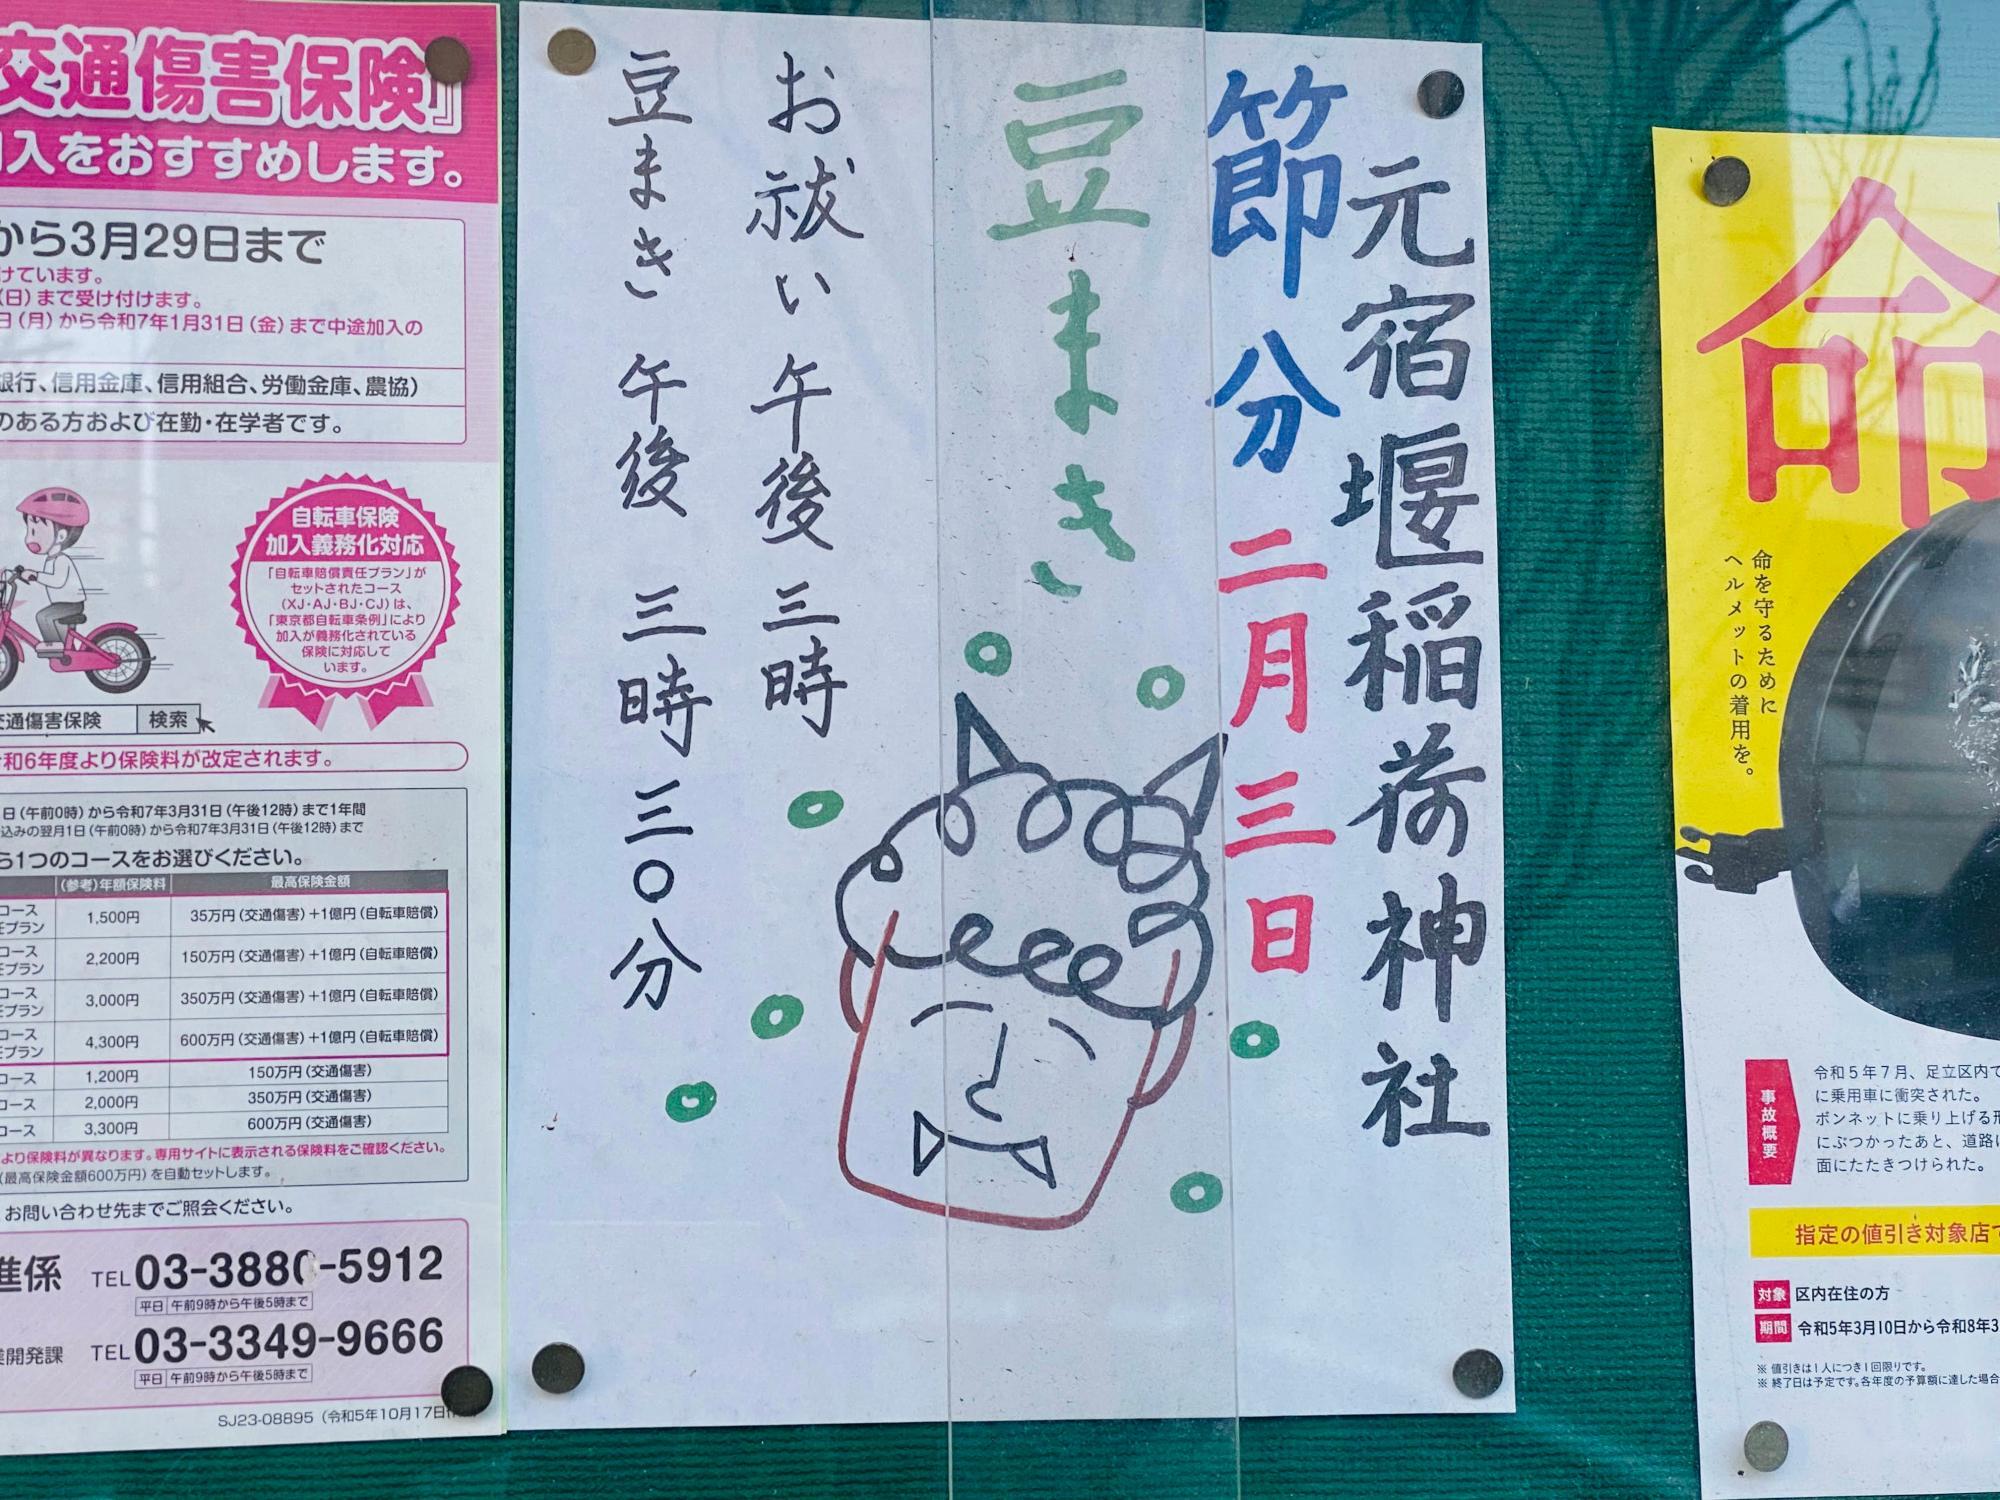 元宿堰稲荷神社
節分 二月三日
豆まき
お祓い 午後 三時
豆まき 午後 三時 三〇分
交通傷害保険』
入をおすすめします。
から3月29日まで
けています。
(日)まで受け付けます。
日(月)から令和7年1月31日(金)まで中途加入の
銀行、信用金庫、信用組合、労働金庫、農協)
のある方および在勤・在学者です。
自転車保険
加入義務化対応
「自転車賠償責任プラン」が
セットされたコース
(XJ・AJ・BJ・CJ)は、
「東京都自転車条例」により
加入が義務化されている
保険に対応して
います。
交通傷害保険 検索
令和6年度より保険料が改定されます。
日(午前0時)から令和7年3月31日(午後12時)まで1年間
込みの翌月1日(午前0時)から令和7年3月31日(午後12時)まで
ら1つのコースをお選びください。
(参考)年額保険料 最高保険金額
コース
プラン 1,500円 35万円(交通傷害)+1億円(自転車賠償)
コース
プラン 2,200円 150万円(交通傷害)+1億円(自転車賠償)
コース
プラン 3,000円 350万円(交通傷害)+1億円(自転車賠償)
コース
プラン 4,300円 600万円(交通傷害)+1億円(自転車賠償)
コース 1,200円 150万円(交通傷害)
コース 2,000円 350万円(交通傷害)
コース 3,300円 600万円(交通傷害)
より保険料が異なります。専用サイトに表示される保険料をご確認ください。
(最高保険金額600万円)を自動セットします。
お問い合わせ先までご照会ください。
進係 TEL 03-3880-5912
平日 午前9時から午後5時まで
開発課 TEL 03-3349-9666
平日 午前9時から午後5時まで
SJ23-08895 (令和5年10月17日
命
命を守るために
ヘルメットの着用を。
事故概要
令和5年7月、足立区内で
に乗用車に衝突された。
ボンネットに乗り上げる形
にぶつかったあと、道路に
面にたたきつけられた。
指定の値引き対象店で
対象 区内在住の方
期間 令和5年3月10日から令和8年3
※ 値引きは1人につき1回限りです。
※ 終了日は予定です。各年度の予算額に達した場合